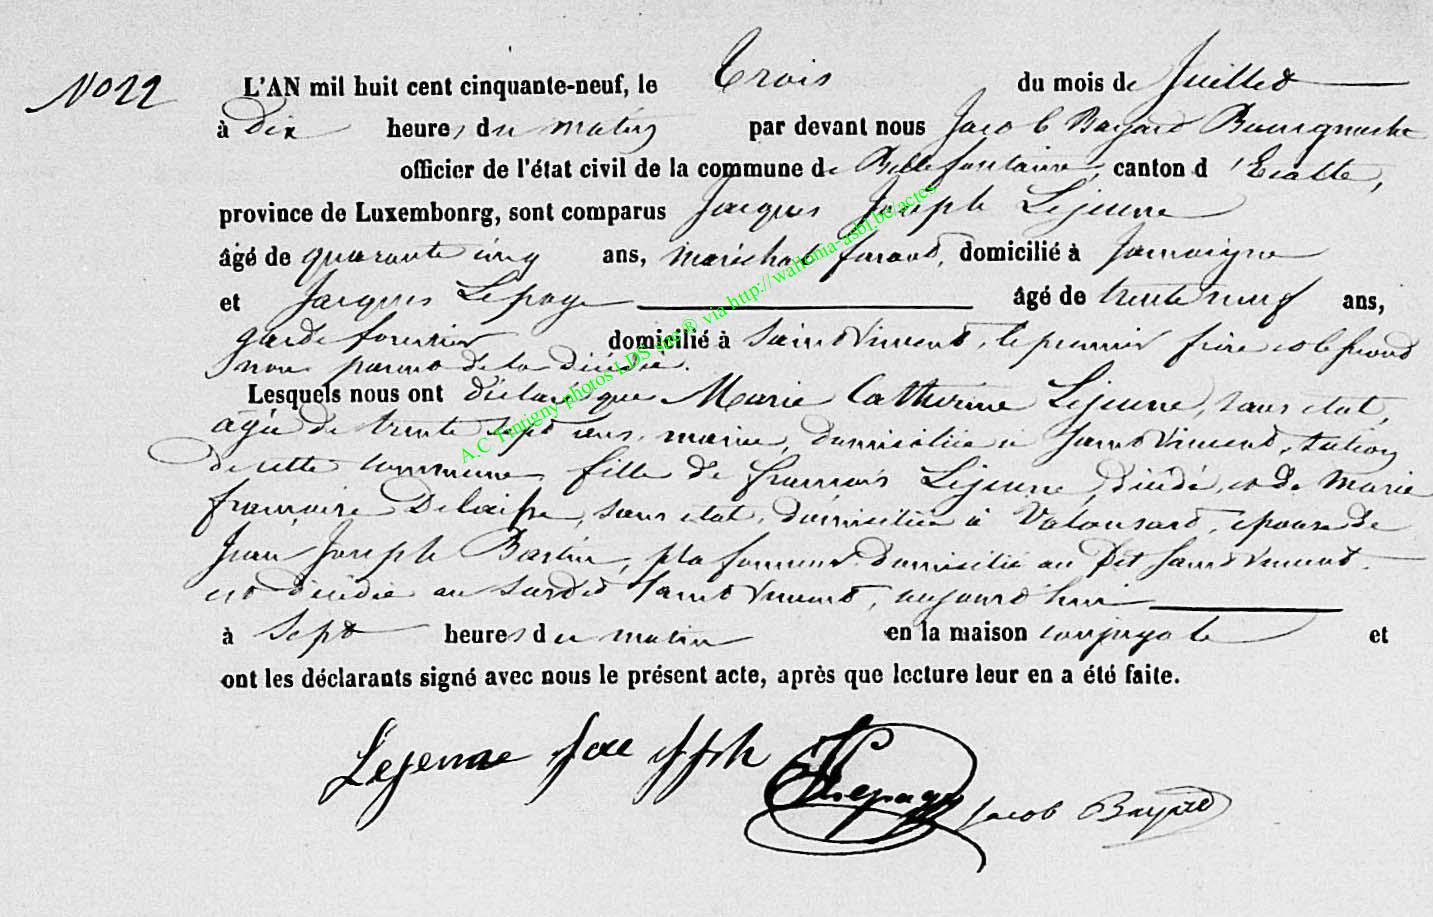 No 22
L'AN mil huit cent cinquante-neuf, le Trois du mois de Juillet
à dix heures du matin par devant nous Jacob Bayard Bourgmestre
officier de l'état civil de la commune de Bellefontaine, canton d'Etalle,
province de Luxembonrg, sont comparus Jacques Joseph Lejeune
âgé de quarante cinq ans, maréchal ferant, domicilié à Jamoigne
et Jacques Lepage âgé de trente neuf ans,
garde forestier domicilié à Saint Vincent, le premier frère et le second
non parent de la décédée.
Lesquels nous ont déclaré que Marie Catherine Lejeune, sans état,
agée de trente sept ans, mariée, domiciliée à Saint Vincent, section
de cette commune, fille de françois Lejeune, décédé, et de Marie
françoise Delaisse, sans état, domiciliée à Valansart, épouse de
Jean Joseph Bastin, plafonneur domicilié au dit Saint Vincent
est décédée au susdit Saint Vincent, aujourd'hui
à Sept heures du matin en la maison conjugale et
ont les déclarants signé avec nous le présent acte, après que lecture leur en a été faite.
Lejeune Jac Jph Lepage Jacob Bayard
A.C Tintigny photos LDS sas ® via http://wallonia-asbl.be/actes